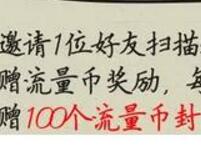 邀请1位好友扫描
赠流量币奖励，每
赠100个流量币封